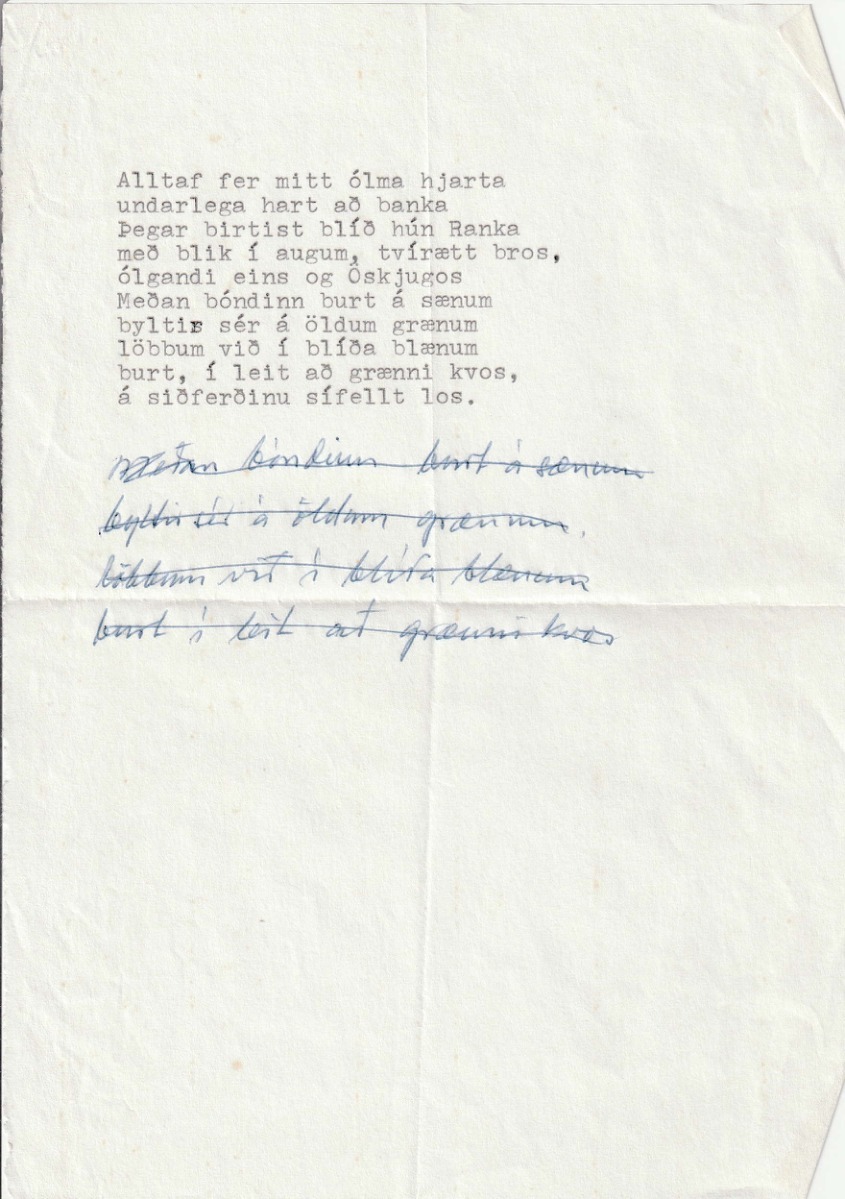 Alltaf fer mitt ólma hjarta
undarlega hart að banka
Þegar birtist blíð hún Ranka
með blik í augum, tvírætt bros,
ólgandi eins og Öskjugos
Meðan bóndinn burt á sænum
byltir sér á öldum grænum
löbbum við í blíða blænum
burt, í leit að grænni kvos,
á siðferðinu sífellt los.
Meðan bóndinn burt á sænum
byltir sér á öldum grænum.
löbbum við í blíða blænum
burt í leit að grænni kvos